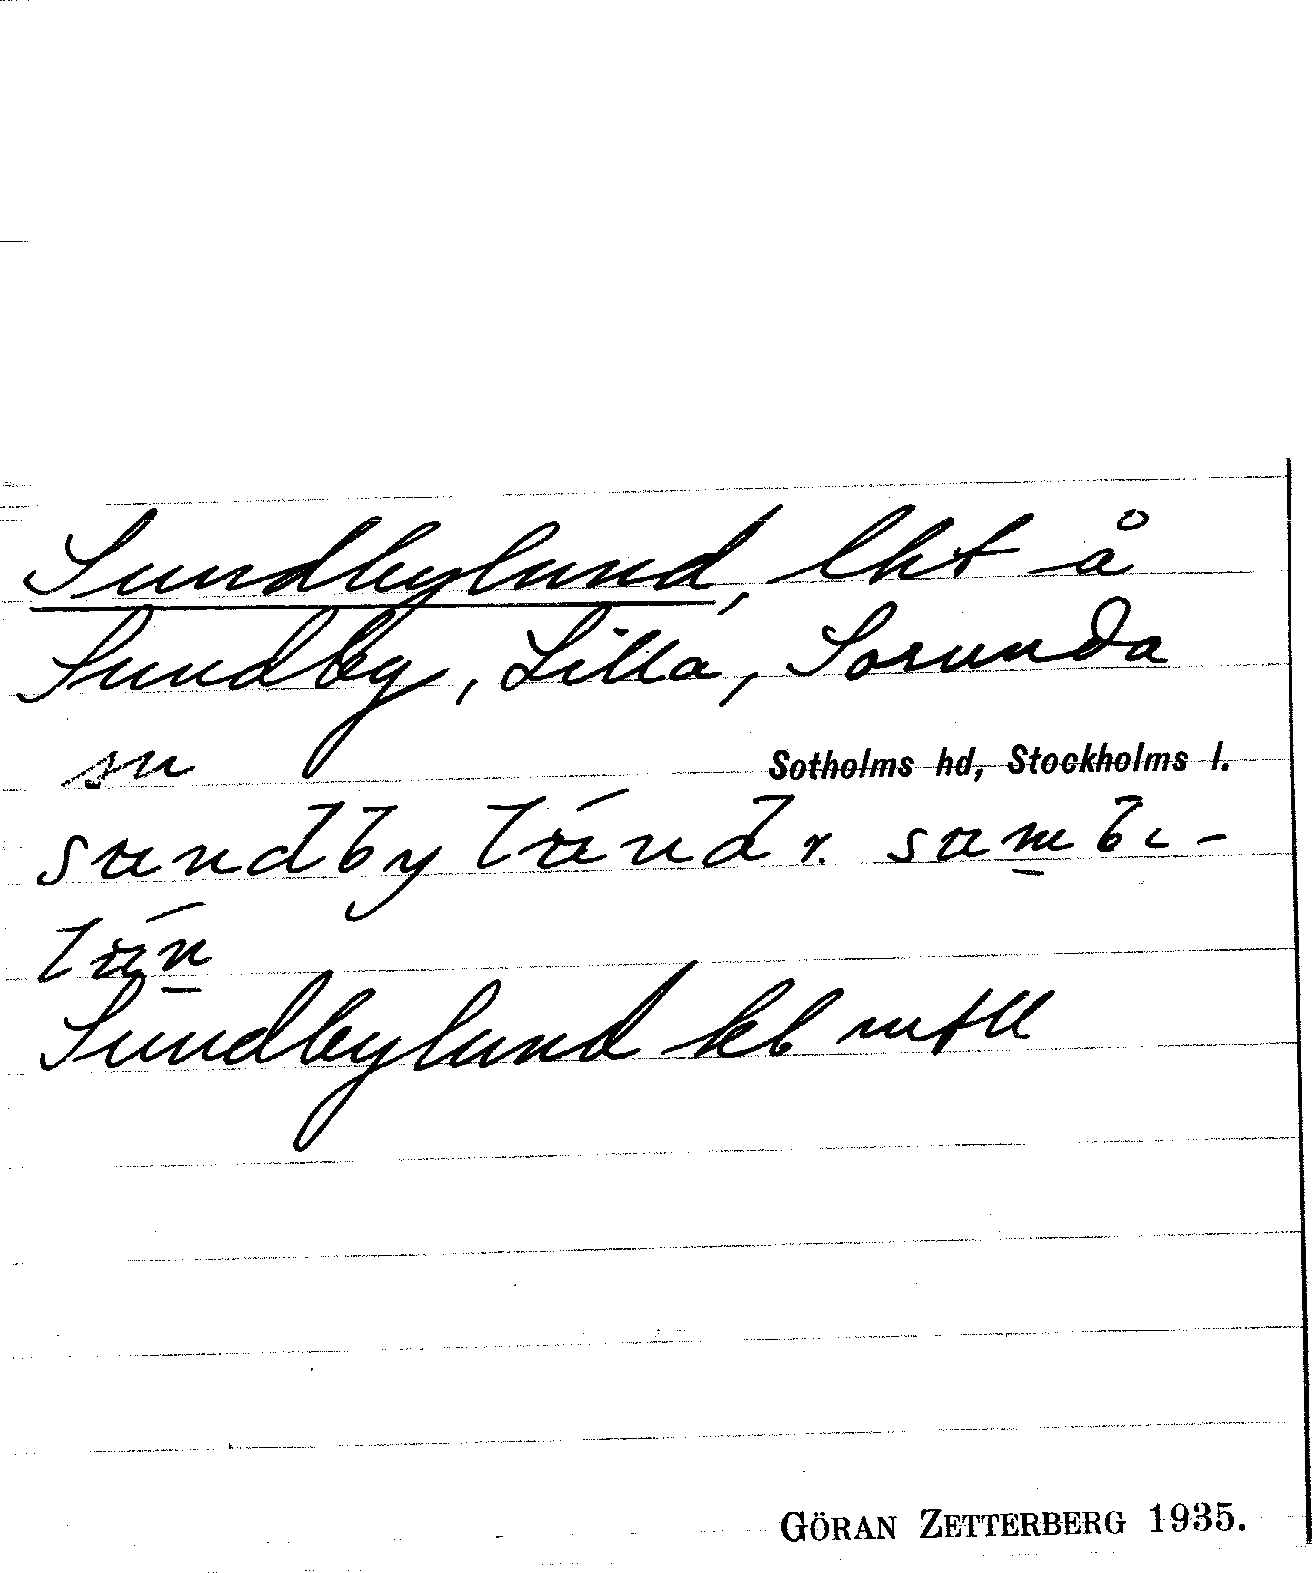 Sundbylund, lht å
Sundby, Lilla, Sorunda
sn Sotholms hd, Stockholms l.
sundbylúnd r. sumbi-
lún
Sundbylund kb mtll
GÖRAN ZETTERBERG 1935.